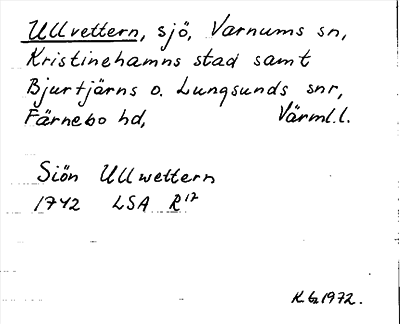 Ullvettern, sjö, Varnums sn,
Kristinehamns stad samt
Bjurtjärns o. Lungsunds snr,
Färnebo hd, Värml.l.
Siön Ullwettern
1742 LSA R17
1972.